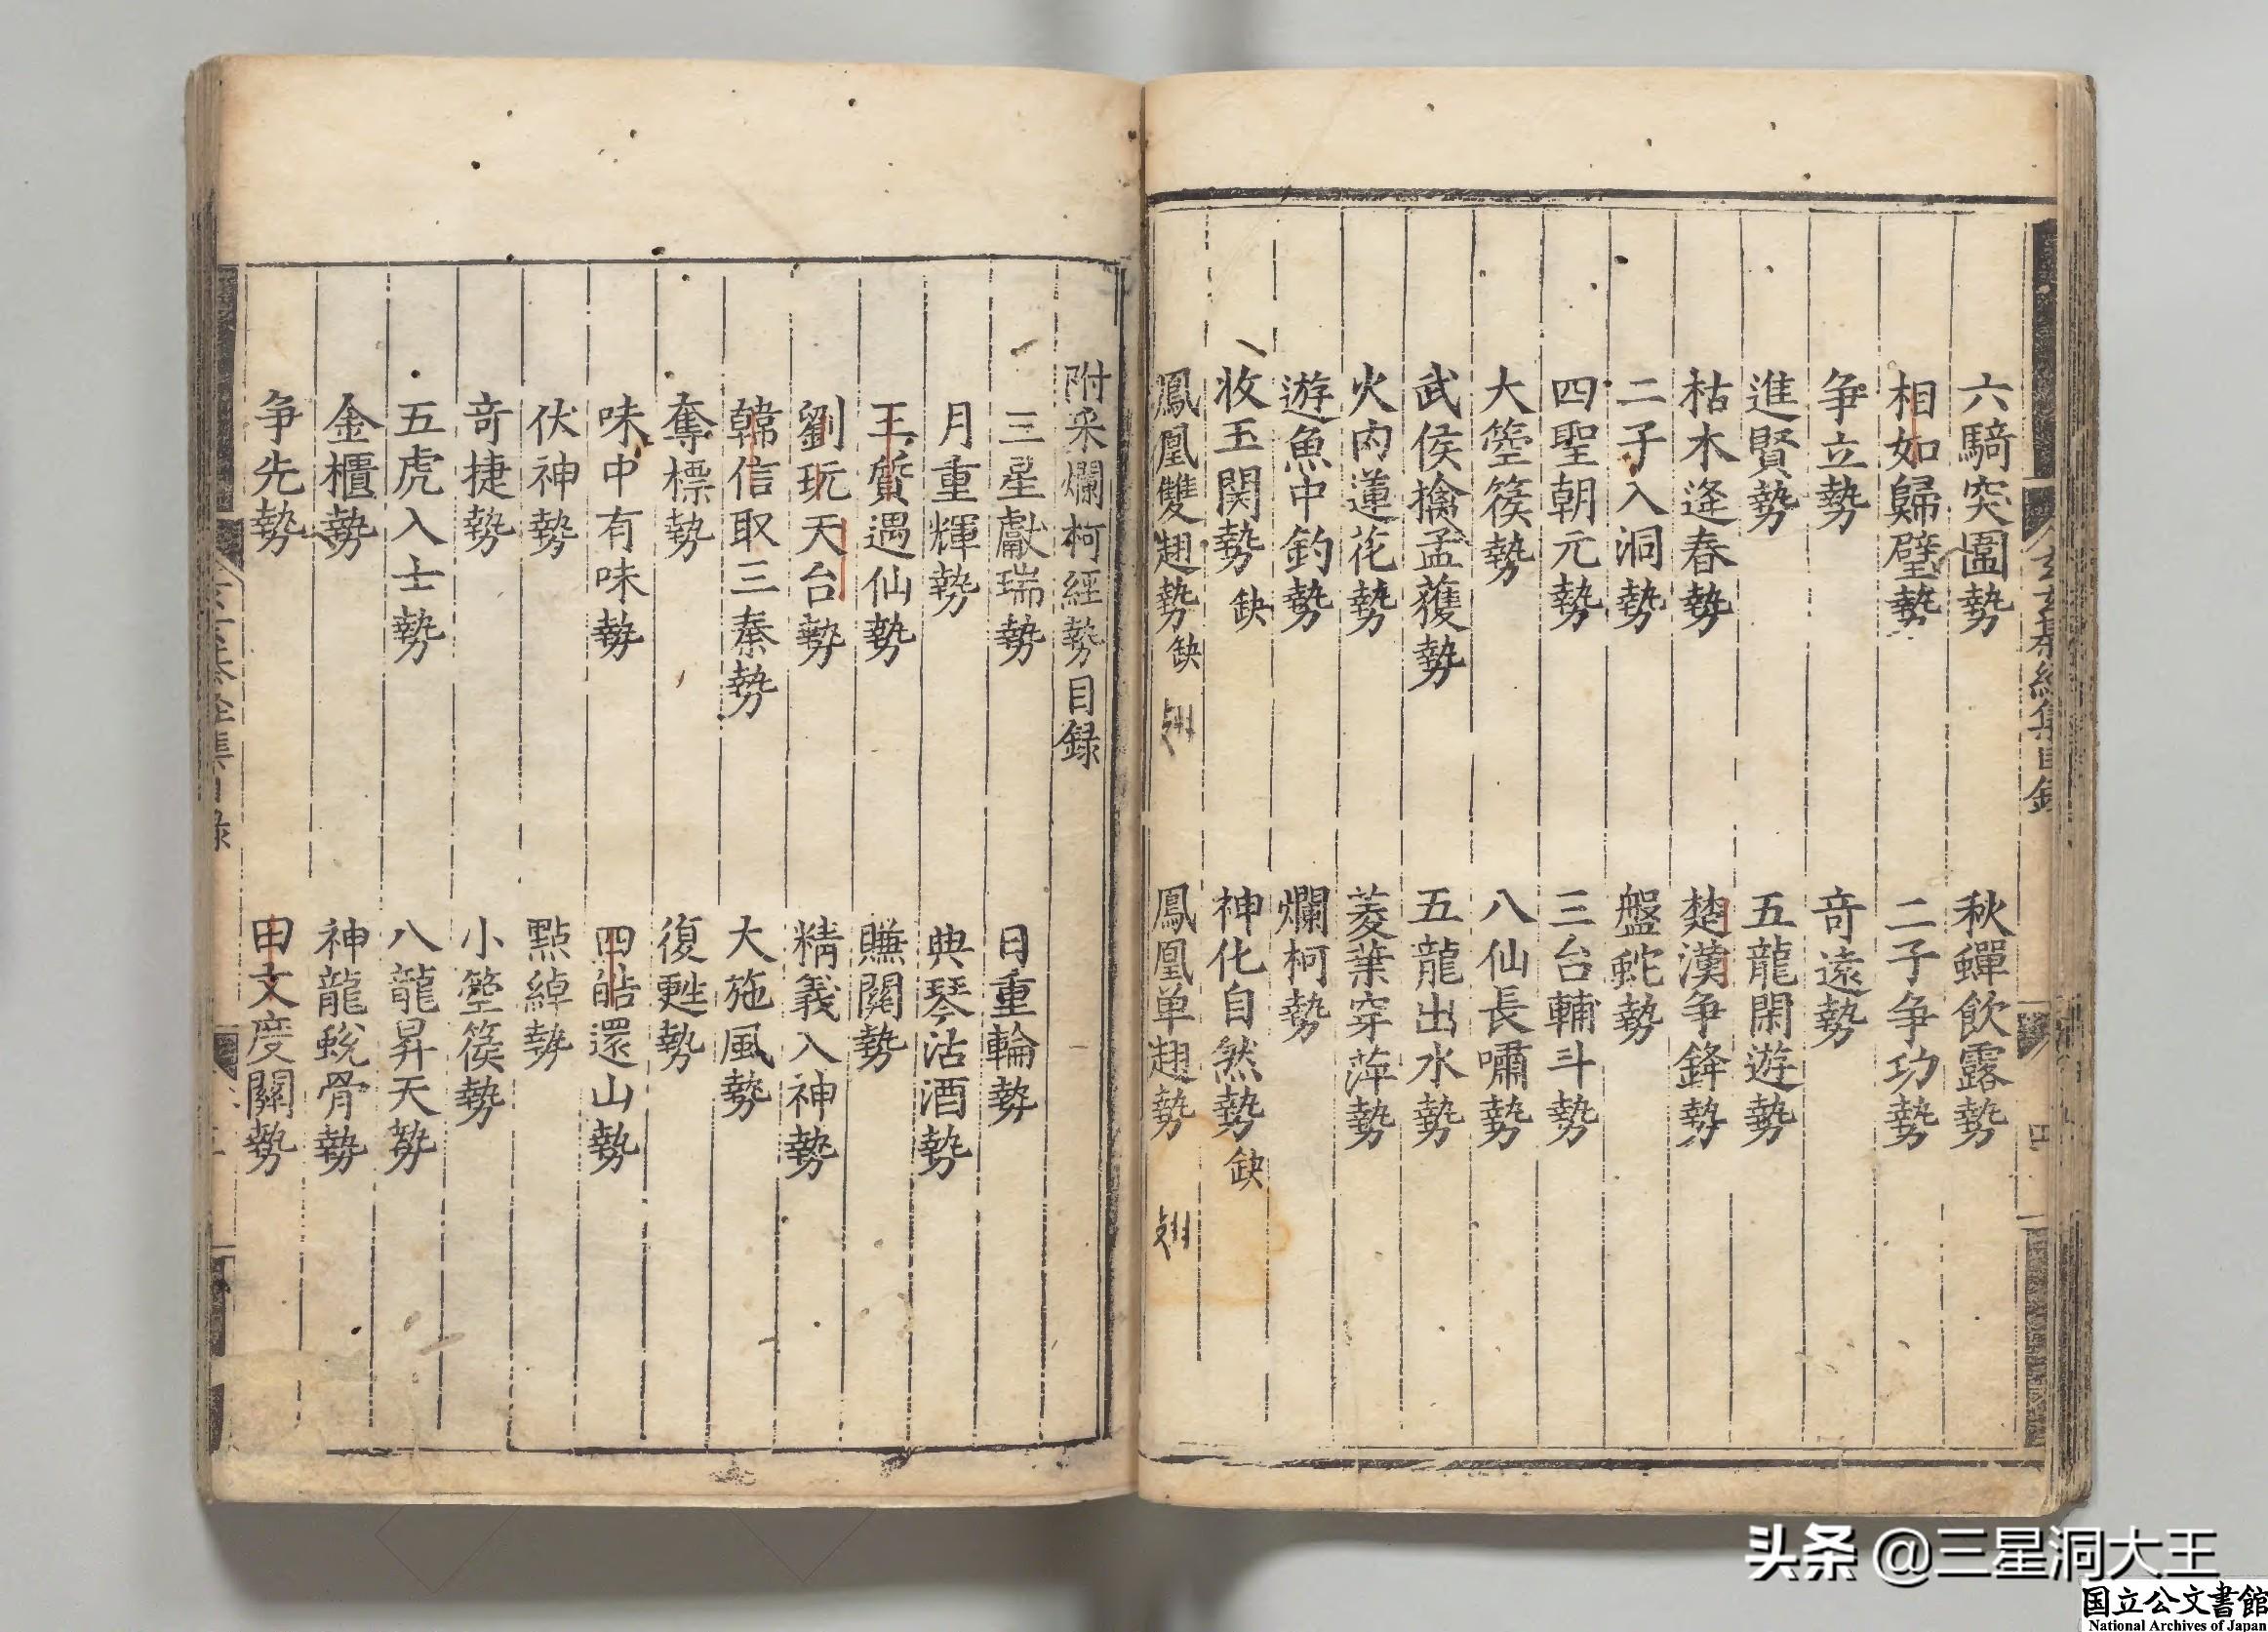 六騎突圍勢　秋蟬飲露勢
相如歸璧勢　二子争功勢
争立勢　竒遠勢
進賢勢　五龍閑遊勢
枯木逢春勢　楚漢争鋒勢
二子入洞勢　盤蛇勢
四聖朝元勢　三台輔斗勢
大箜篌勢　八仙長嘯勢
武侯擒孟獲勢　五龍出水勢
火内蓮花勢　菱葉穿萍勢
遊魚中釣勢　爛柯勢
收玉関勢　缺　神化自然勢　缺
鳳凰雙翅勢　缺　翅　鳳凰单翅勢　翅
附采爛柯經勢目録
三星獻瑞勢　日重輪勢
月重輝勢　典琴沽酒勢
王質遇仙勢　賺関勢
劉玩天台勢　精義入神勢
韓信取三秦勢　大施風勢
奪標勢　復甦勢
味中有味勢　四皓還山勢
伏神勢　點綽勢
竒捷勢　小箜篌勢
五虎入士勢　八龍昇天勢
金櫃勢　神龍蛻骨勢
争先勢　田文度關勢
头条 @三星洞大王
国立公文書館
National Archives of Japan